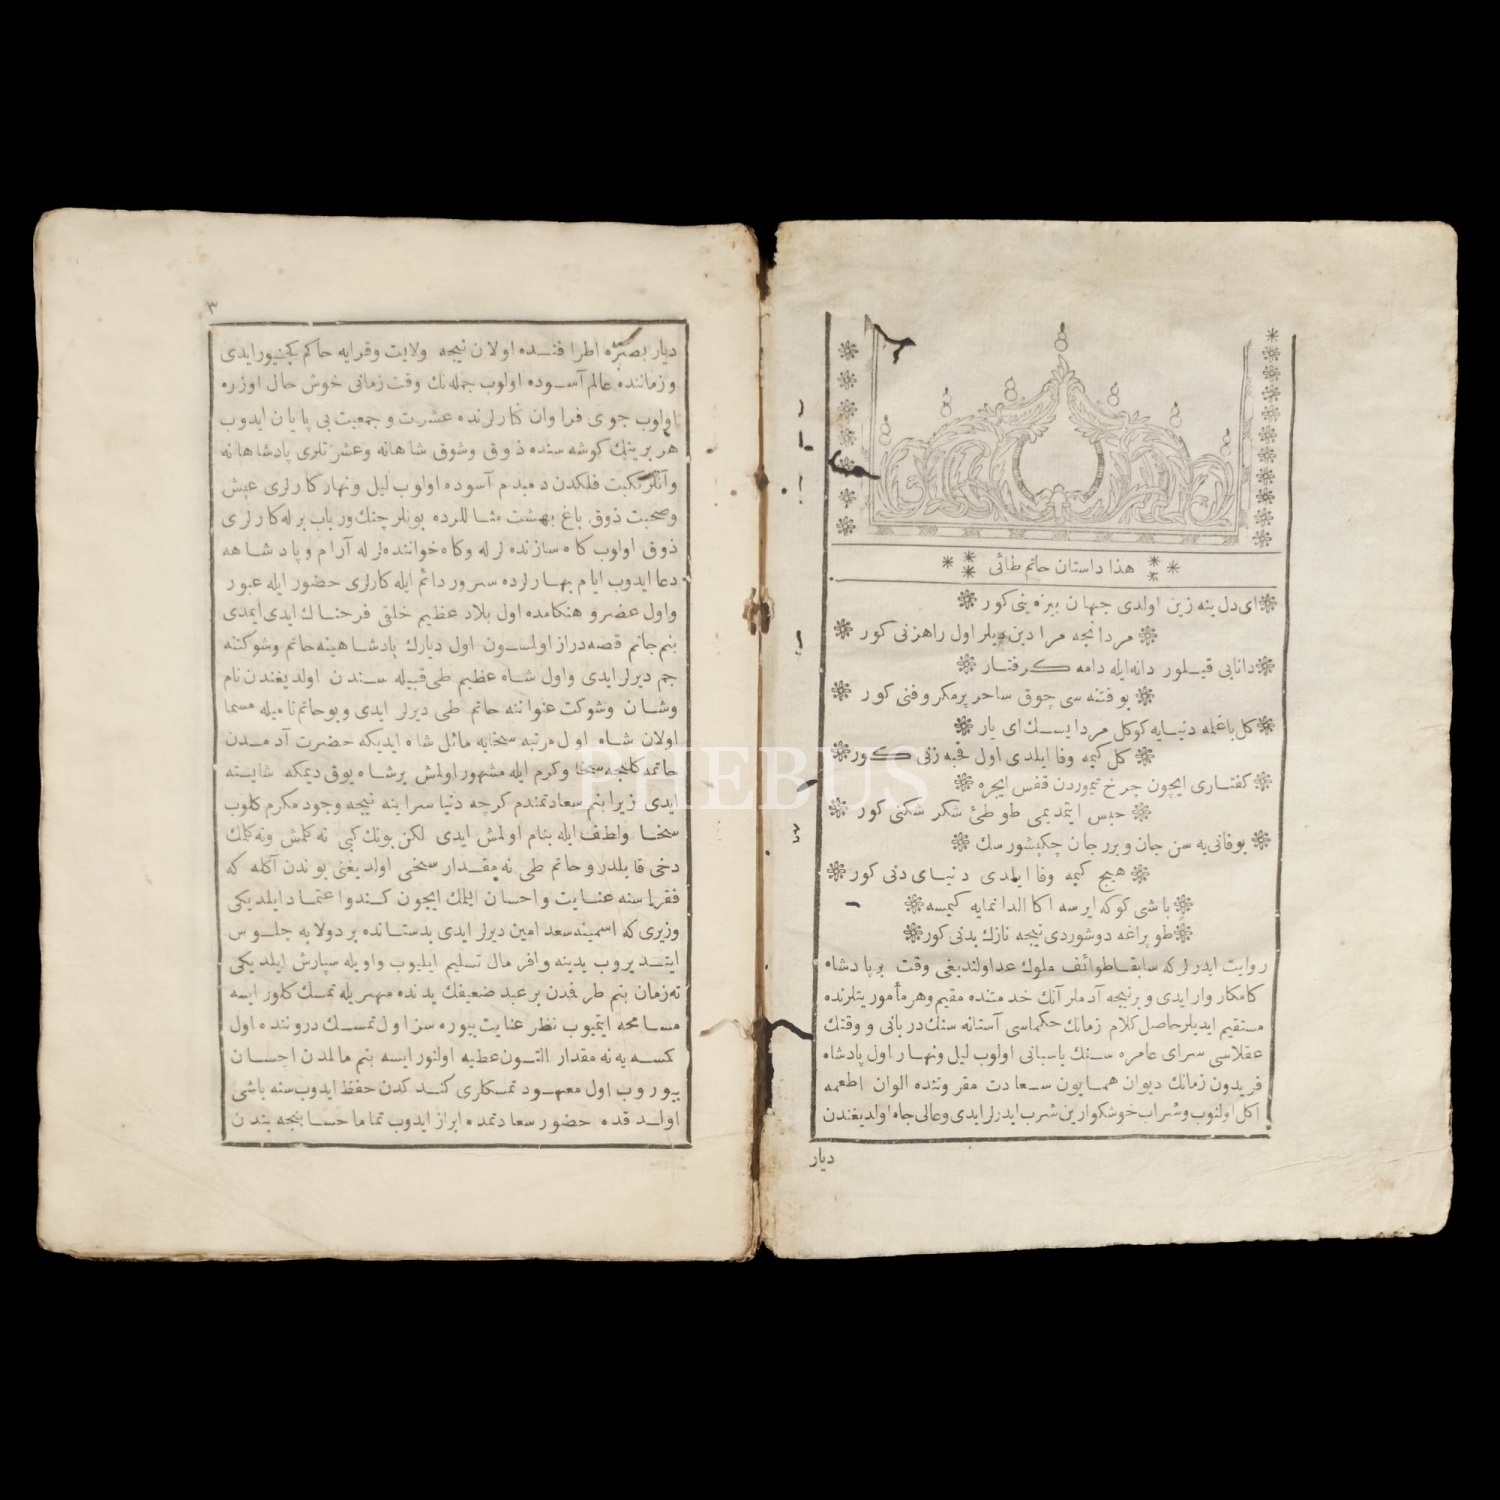 هذا داستان حاتم طائی
ای دل ینه زین اولدی جهان بیزه ینی کور
مردانجه مرادین دیلر اول راهزنی کور
دانایی قیلور دانه ایله دامه کرفتار
بو فتنه سی چوق ساحر پرمکر و فنی کور
کل باغلمه دنیایه کوکل مردایسك ای یار
کل کیمه وفا ایلدی اول قحبه زنی کور
کفتاری ایچون چرخ تیموردن قفس ایچره
حبس ایتدیمی طوطئ شکر شکنی کور
بو فانی یه سن جان ویرر جان چکیشورسك
هیچ کیمه وفا ایلدی دنیای دنی کور
باشی کوکه ایرسه اکا الدانمایه کیمسه
طوپراغه دوشوردی نیجه نازك بدنی کور
روایت ایدرلرکه سابقا طوائف ملوك عد اولندیغی وقت بر پادشاه
کامکار وارایدی و بر نیجه آدملر آنك خدمتنده مقیم وهر مأموریتلرنده
مستقیم ایدیلر حاصل کلام زمانك حکماسی آستانه سنك دربانی و وقتك
عقلاسی سرای عامره سنك پاسبانی اولوب لیل ونهار اول پادشاه
فریدون زمانك دیوان همایون سعادت مقروننده الوان اطعمه
اکل اولنوب وشراب خوشکوارین شرب ایدرلر ایدی وعالی جاه اولدیغندن
دیار
٣
دیار بصره اطرافنده اولان نیجه ولایت وقرایه حاکم کچنیورایدی
وزماننده عالم آسوده اولوب جمله نك وقت زمانی خوش حال اوزره
اولوب جوی فراوان کنارلرنده عشرت و جمعیت بی پایان ایدوب
هر برینك کوشه سنده ذوق وشوق شاهانه وعشرتلری پادشاهانه
وآنلر نکبت فلکدن دمبدم آسوده اولوب لیل ونهار کارلری عیش
وصحبت ذوق باغ بهشت مثاللرده بونلر چنك ورباب برله کارلری
ذوق اولوب کاه سازنده لر له وکاه خواننده لر له آرام وپادشاهه
دعا ایدوب ایام بهارلرده سرور دائم ایله کارلری حضور ایله عبور
واول عصر و هنکامده اول بلاد عظیم خلقی فرحناك ایدی ایمدی
بنم جانم قصه دراز اولمسون اول دیارك پادشاهینه حاتم وشوکتنه
جم دیرلر ایدی واول شاه عظیم طی قبیله سندن اولدیغندن نام
وشان وشوکت عنواننه حاتم طی دیرلر ایدی وبو حاتم نامیله مسما
اولان شاه اول مرتبه سخایه مائل شاه ایدیکه حضرت آدمدن
حاتمه کلنجه سخا وکرم ایله مشهور اولمش بر شاه یوق دیمکه شایسته
ایدی زیرا بنم سعادتمندم کرچه دنیا سراینه نیجه وجود مکرم کلوب
سخا ولطف ایله بنام اولمش ایدی لکن بونك کبی نه کلمش ونه کلمك
دخی قابلدر و حاتم طی نه مقدار سخی اولدیغی بوندن آکله که
فقراسنه عنایت واحسان ایلمك ایچون کندو اعتماد ایلدیکی
وزیری که اسمینه سعد امین دیرلر ایدی بدستانده بر دولابه جلوس
ایتدیروب یدینه وافر مال تسلیم ایلیوب واویله سپارش ایلدیکی
نه زمان بنم طرفدن بر عبد ضعیفك یدنده مهریله تمسك کلور ایسه
مسامحه ایتمیوب نظر عنایت بیوره سز اول تمسك دروننده اول
کسه یه نه مقدار التون عطیه اولنور ایسه بنم مالمدن احسان
بیوروب اول معهود تمسکاری کندکدن حفظ ایدوب سنه باشی
اولدقده حضور سعادتمده ابراز ایدوب تماما حسابنجه بندن